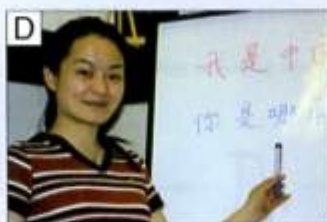 D
我是中
你是哪